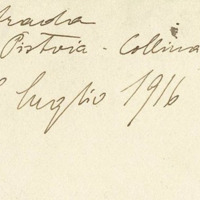 strada
Pistoia - Collina
luglio 1916